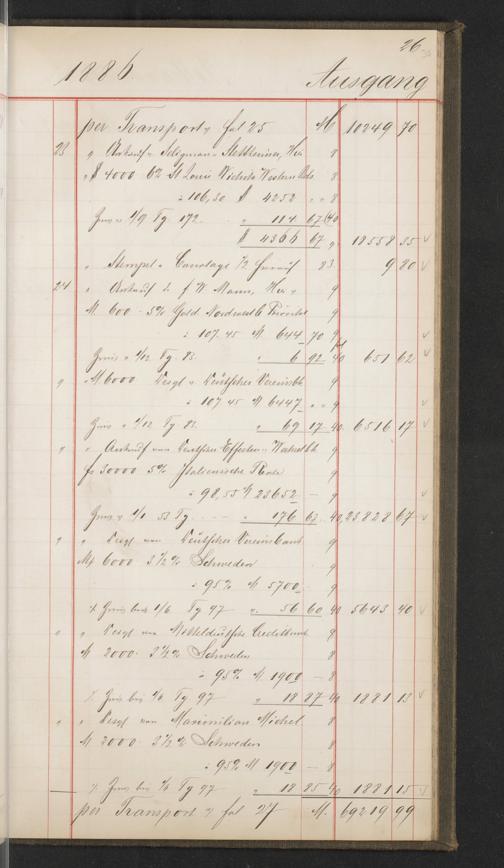 26.
1886 Ausgang
per Transport v fol 25 M 10249 70
23 " Ankauf v. Seligman & Stettheimer, Hier 8
" $ 4000 6% St Louis Wichita Western Bds. 8
à 106,30 $ 4252 " " 8
Zins v 1/9 Tg. 172. " 114 67 40
$ 4366 67 " 18558 35
" Stempel & Courtage 83 9 80
24 " Ankauf v. W Mann, Hier 9
M. 600 5% Gold 9
à 107.45 M 644 70 9
Zinsen 1/12 Tg. 83. " 6 92 40 651 62
" M 6000 Desgl v Deutscher Vereinsbk 9
à 107 45 M 6447 " " 9
Zins v 1/12 Tg. 83. " 69 17 40 6516 17
" " Ankauf von Deutscher Effecten & Wechselbk 9
fr 30000 5% Italienische Rente 9
à 98,55 M 23652 — 9
Zins v 1/1 53 Tg. " 176 67 40 23828 67
" " Desgl von Deutscher Vereinsbank 9
M 6000 3 1/2% Schweden 9
à 95% M 5700 9
% Zins bis 1/6 Tg 97 " 56 60 40 5643 40
" " Desgl von Mitteldeutsche Creditbank 8
M 2000. 3 1/2% Schweden 8
à 95% M 1900 — 8
% Zins bis 1/6 Tg. 97 " 18 87 40 1881 13
" " Desgl von Maximilian Michel 8
M 2000 3 1/2% Schweden 8
à 95% M 1900 — 8
% Zins bis 1/6 Tg 97 " 18 85 40 1881 15
per Transport v fol 27 M. 69219 99